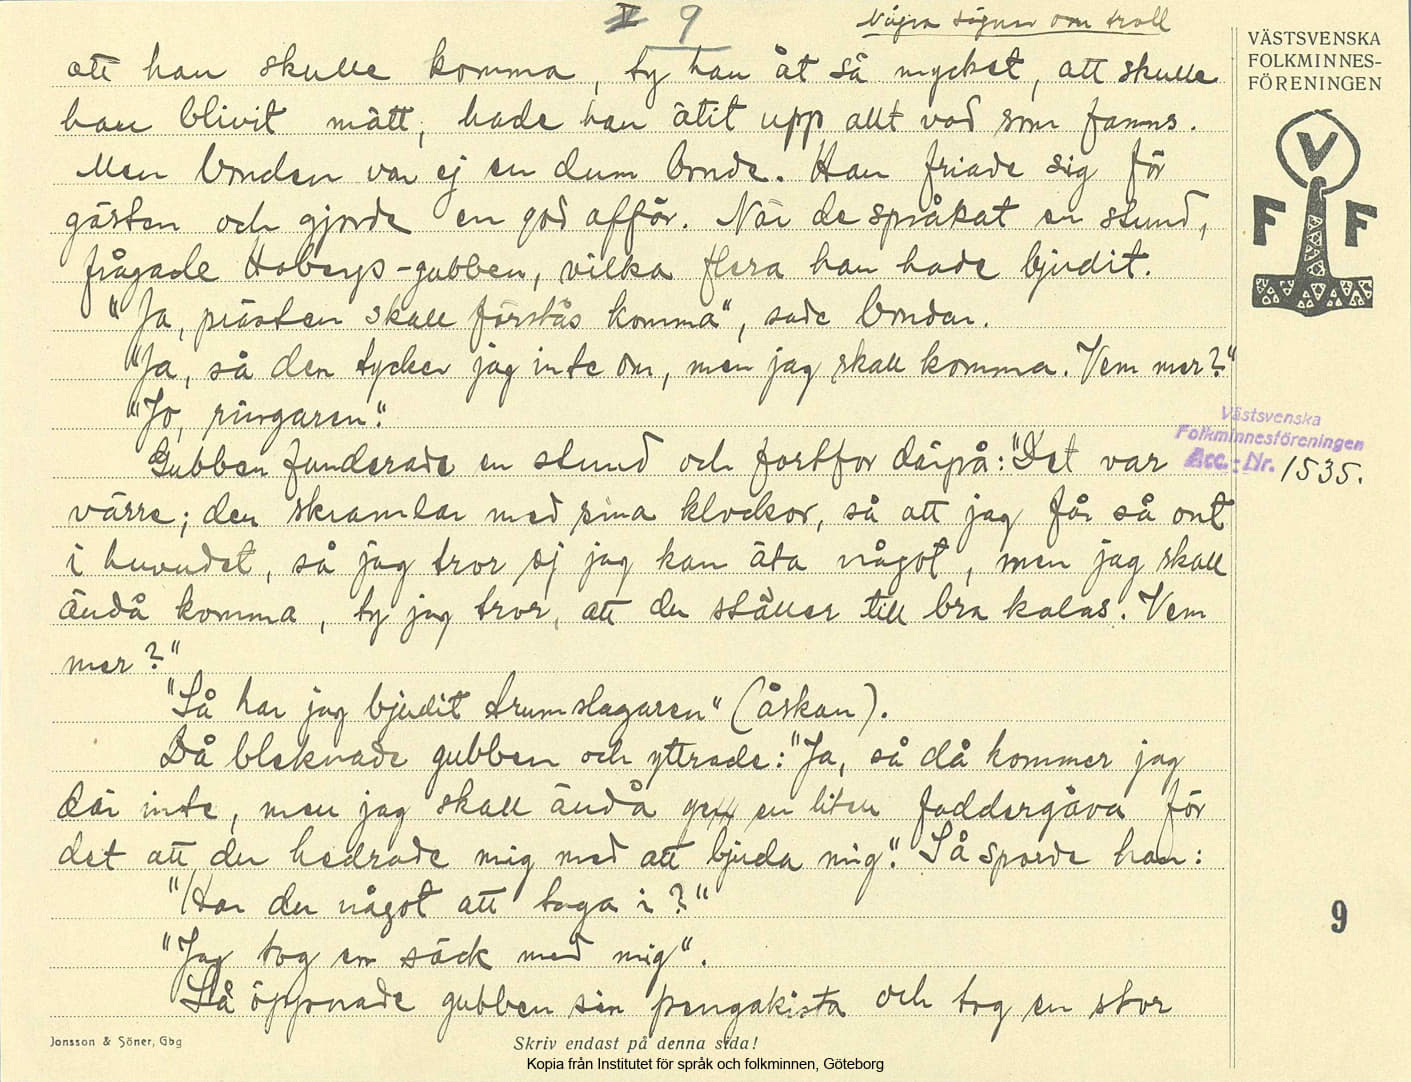 V 9
Några sägner om troll
VÄSTSVENSKA
FOLKMINNES-
FÖRENINGEN
V
F F
att han skulle komma, ty han åt så mycket, att skulle
han blivit mätt, hade han ätit upp allt vad som fanns.
Men bonden var ej en dum bonde. Han friade sig för
gästen och gjorde en god affär. När de språkat en stund,
frågade Hobergs-gubben, vilka flera han hade bjudit.
"Ja, prästen skall förstås komma", sade bonden.
"Ja, så den tycker jag inte om, men jag skall komma. Vem mer?"
"Jo, ringaren."
Gubben funderade en stund och fortfor därpå: "Det var
Västsvenska
Folkminnesföreningen
Acc.-Nr. 1535.
värre; den skramlar med sina klockor, så att jag får så ont
i huvudet, så jag tror ej jag kan äta något, men jag skall
ändå komma, ty jag tror, att du ställer till bra kalas. Vem
mer?"
"Så har jag bjudit trumslagaren" (åskan).
Då bleknade gubben och yttrade: "Ja, så då kommer jag
där inte, men jag skall ändå ge en liten faddergåva för
det att du hedrade mig med att bjuda mig." Så sporde han:
"Har du något att taga i?"
"Jag tog en säck med mig".
Så öppnade gubben sin pengakista och tog en stor
9
Jonsson & Söner, Gbg
Skriv endast på denna sida!
Kopia från Institutet för språk och folkminnen, Göteborg